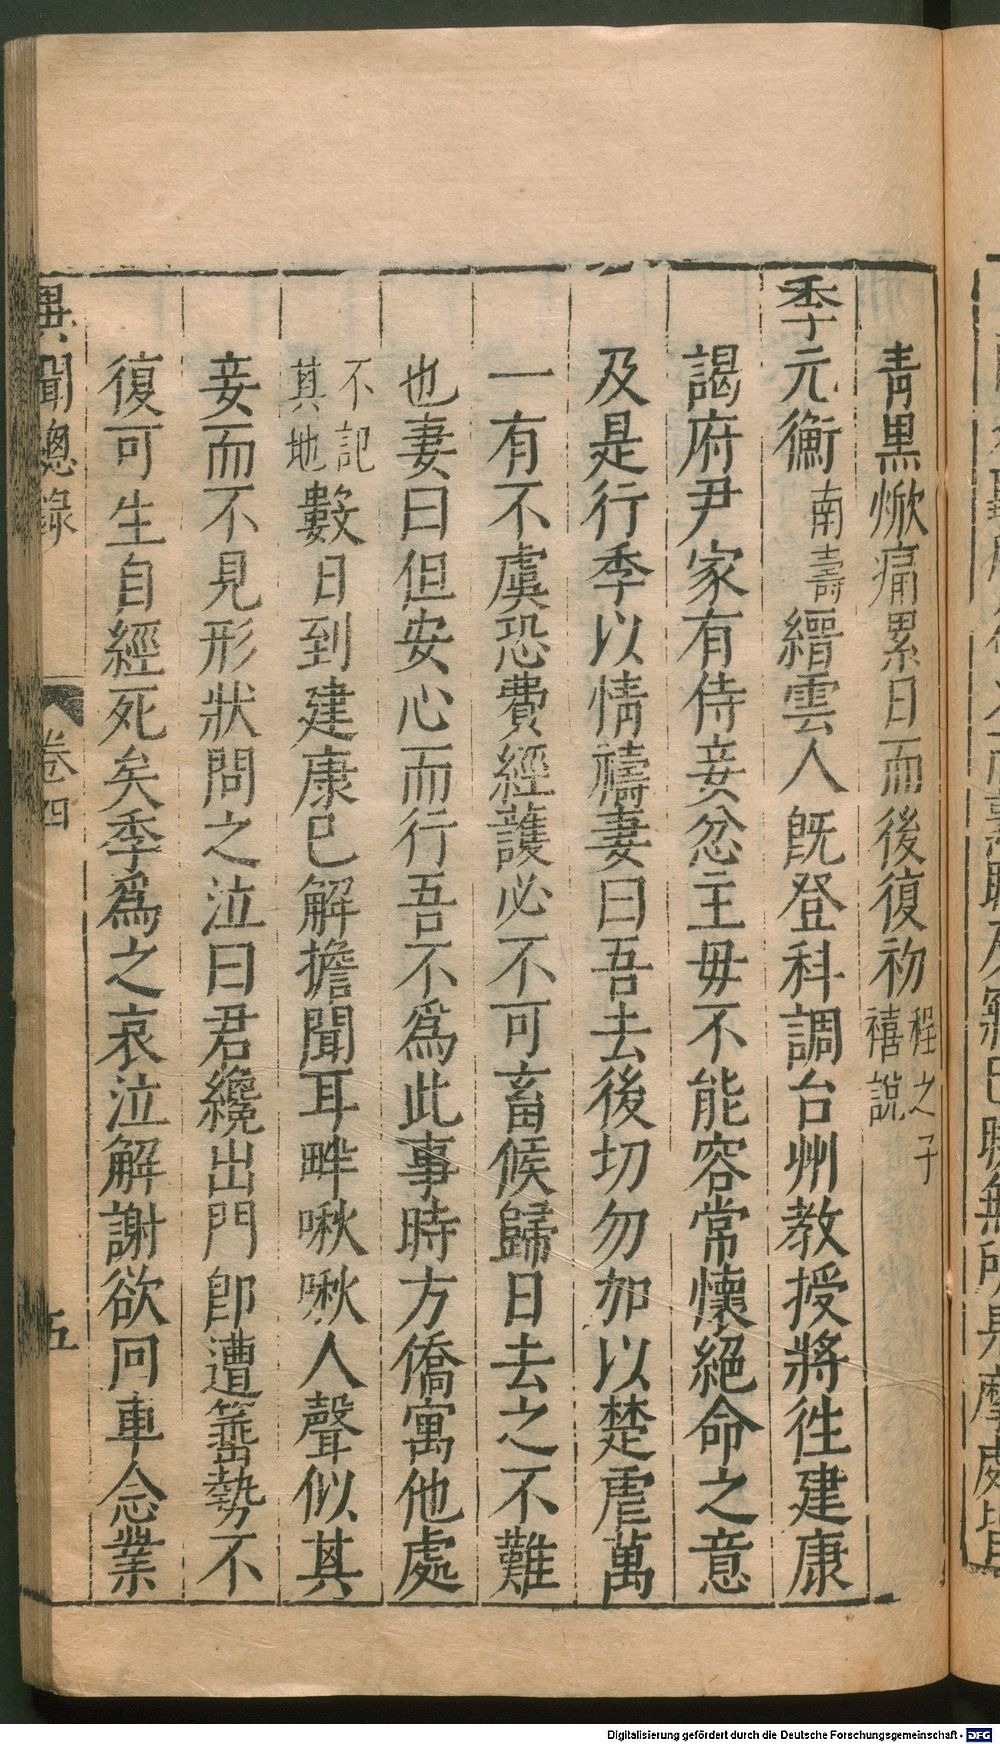 青黒焮痛累日而後復初程之子禧說
季元衡南壽縉雲人旣登科調台州教授將徃建康
謁府尹家有侍妾忿主毋不能容常懷絕命之意
及是行季以情禱妻曰吾去後切勿加以楚虐萬
一有不虞恐費經護必不可畜候歸日去之不難
也妻曰但安心而行吾不爲此事時方僑寓他處
不記其地數日到建康巳解擔聞耳畔啾啾人聲似其
妾而不見形狀問之泣曰君纔出門卽遭箠勢不
復可生自經死矣季爲之哀泣解謝欲囘車念業
異聞總錄 卷四 五
Digitalisierung gefördert durch die Deutsche Forschungsgemeinschaft - DFG